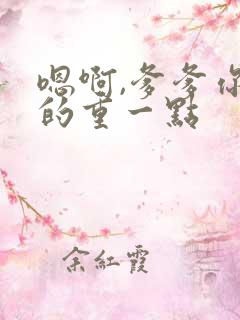 嗯啊,爹爹你
的重一點
余紅霞